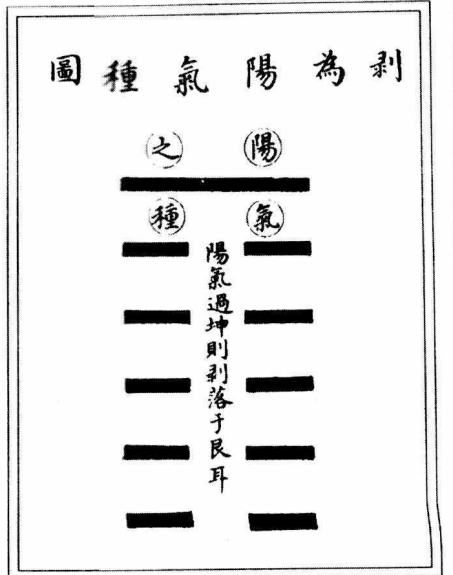 剥為陽氣種圖
陽氣
之種
陽氣過坤則剥落于艮耳